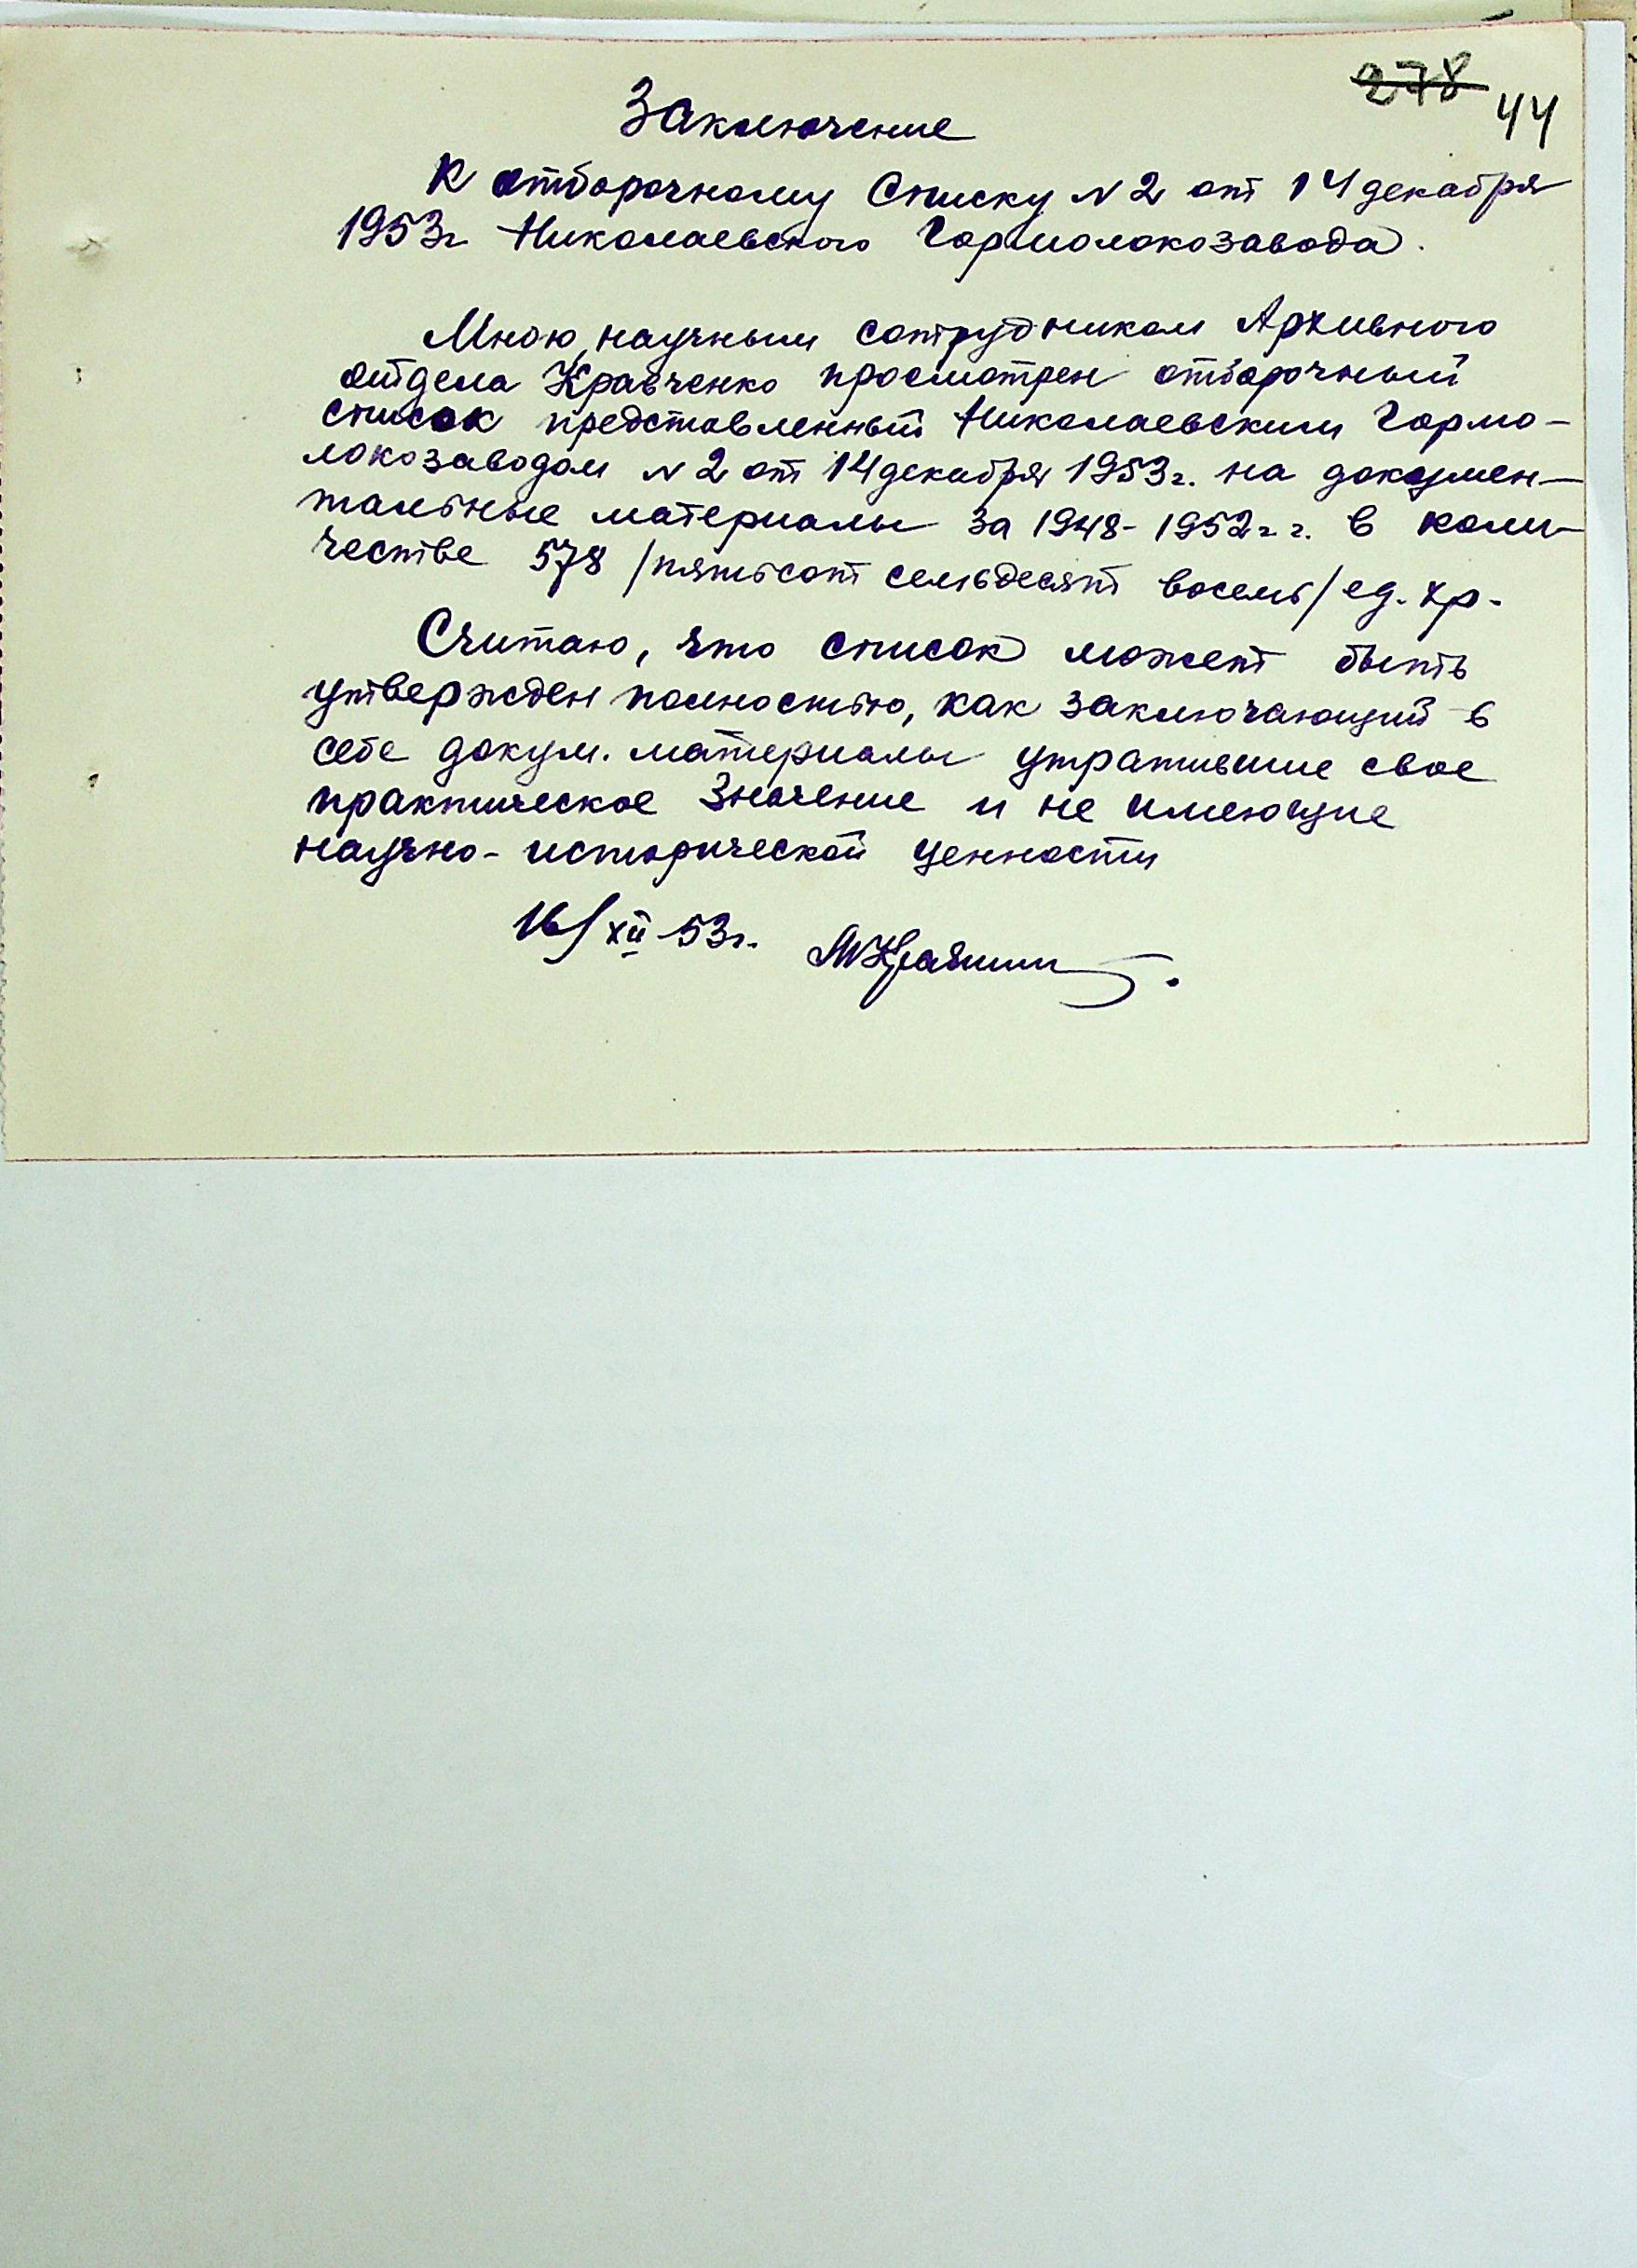 278 44
Заключение
К отборочному Списку N 2 от 14 декабря
1953г Николаевского Гормолокозавода.
Мною, научным сотрудником Архивного
отдела Кравченко просмотрен отборочный
список представленный Николаевским Гормо-
локозаводом N 2 от 14 декабря 1953г. на докумен-
тальные материалы за 1948-1952г.г. в коли-
честве 578 /пятьсот семьдесят восемь/ ед. хр.
Считаю, что список может быть
утвержден полностью, как заключающий в
себе докум. материалы утратившие свое
практическое значение и не имеющие
научно-исторической ценности
16/XII-53г.